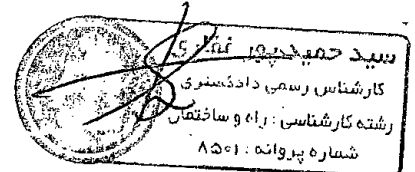 سید حمیدپور
کارشناس رسمی دادگستری
رشته کارشناسی : راه و ساختمان
شماره پروانه : ۸۵۰۱